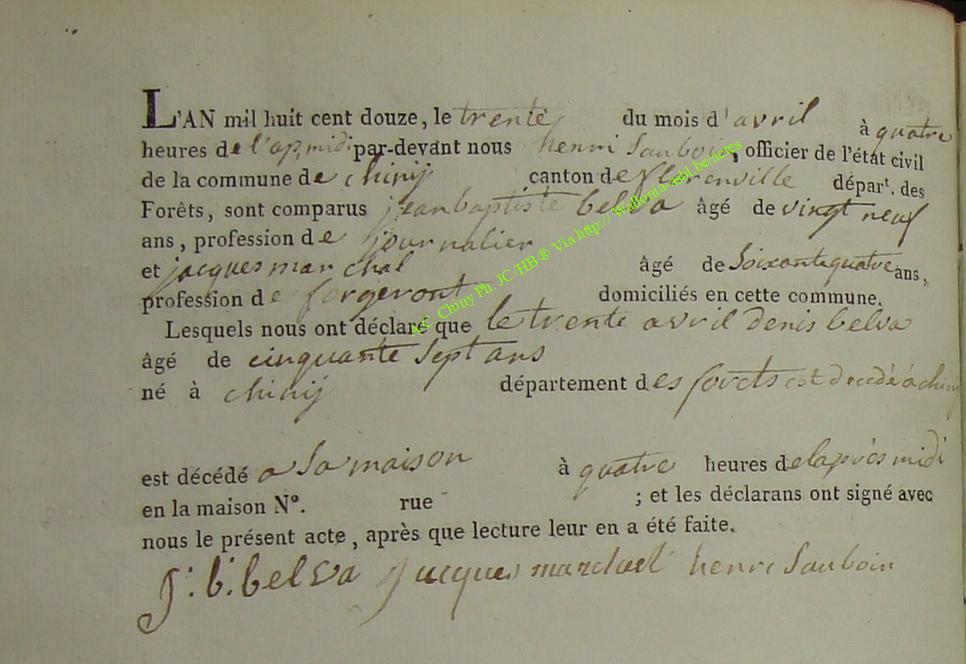 L'AN mil huit cent douze, le trente du mois d'avril à quatre
heures de l'ap. midi par-devant nous henri Sauboin, officier de l'état civil
de la commune de chinij canton de florenville départ. des
Forêts, sont comparus jean baptiste belva âgé de vingt neuf
ans, profession de journalier
et jacques marchal âgé de Soixante quatre ans,
profession de forgeront domiciliés en cette commune.
Lesquels nous ont déclaré que le trente avril denis belva
âgé de cinquante Sept ans
né à chinij département des forets est decedé a chinij
est décédé a Sa maison à quatre heures de laprès midi
en la maison N°. rue ; et les déclarans ont signé avec
nous le présent acte, après que lecture leur en a été faite.
J. b. belva Jacques marchal henri Sauboin
A.C. Chiny Ph. JC /HB ® Via http:// Wallonia-asbl.be/actes